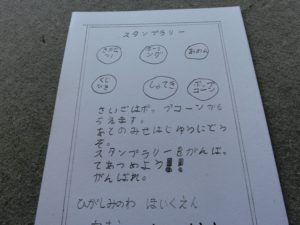 スタンプラリー
さかなつり ボーリング おめん
くじびき しゃてき ポップコーン
さいごはポップコーンがも
らえます。
あとのみせはじゆうにどう
ぞ。
スタンプラリーをがんばっ
てあつめよう!!
がんばれ。
ひがしみのわ ほいくえん